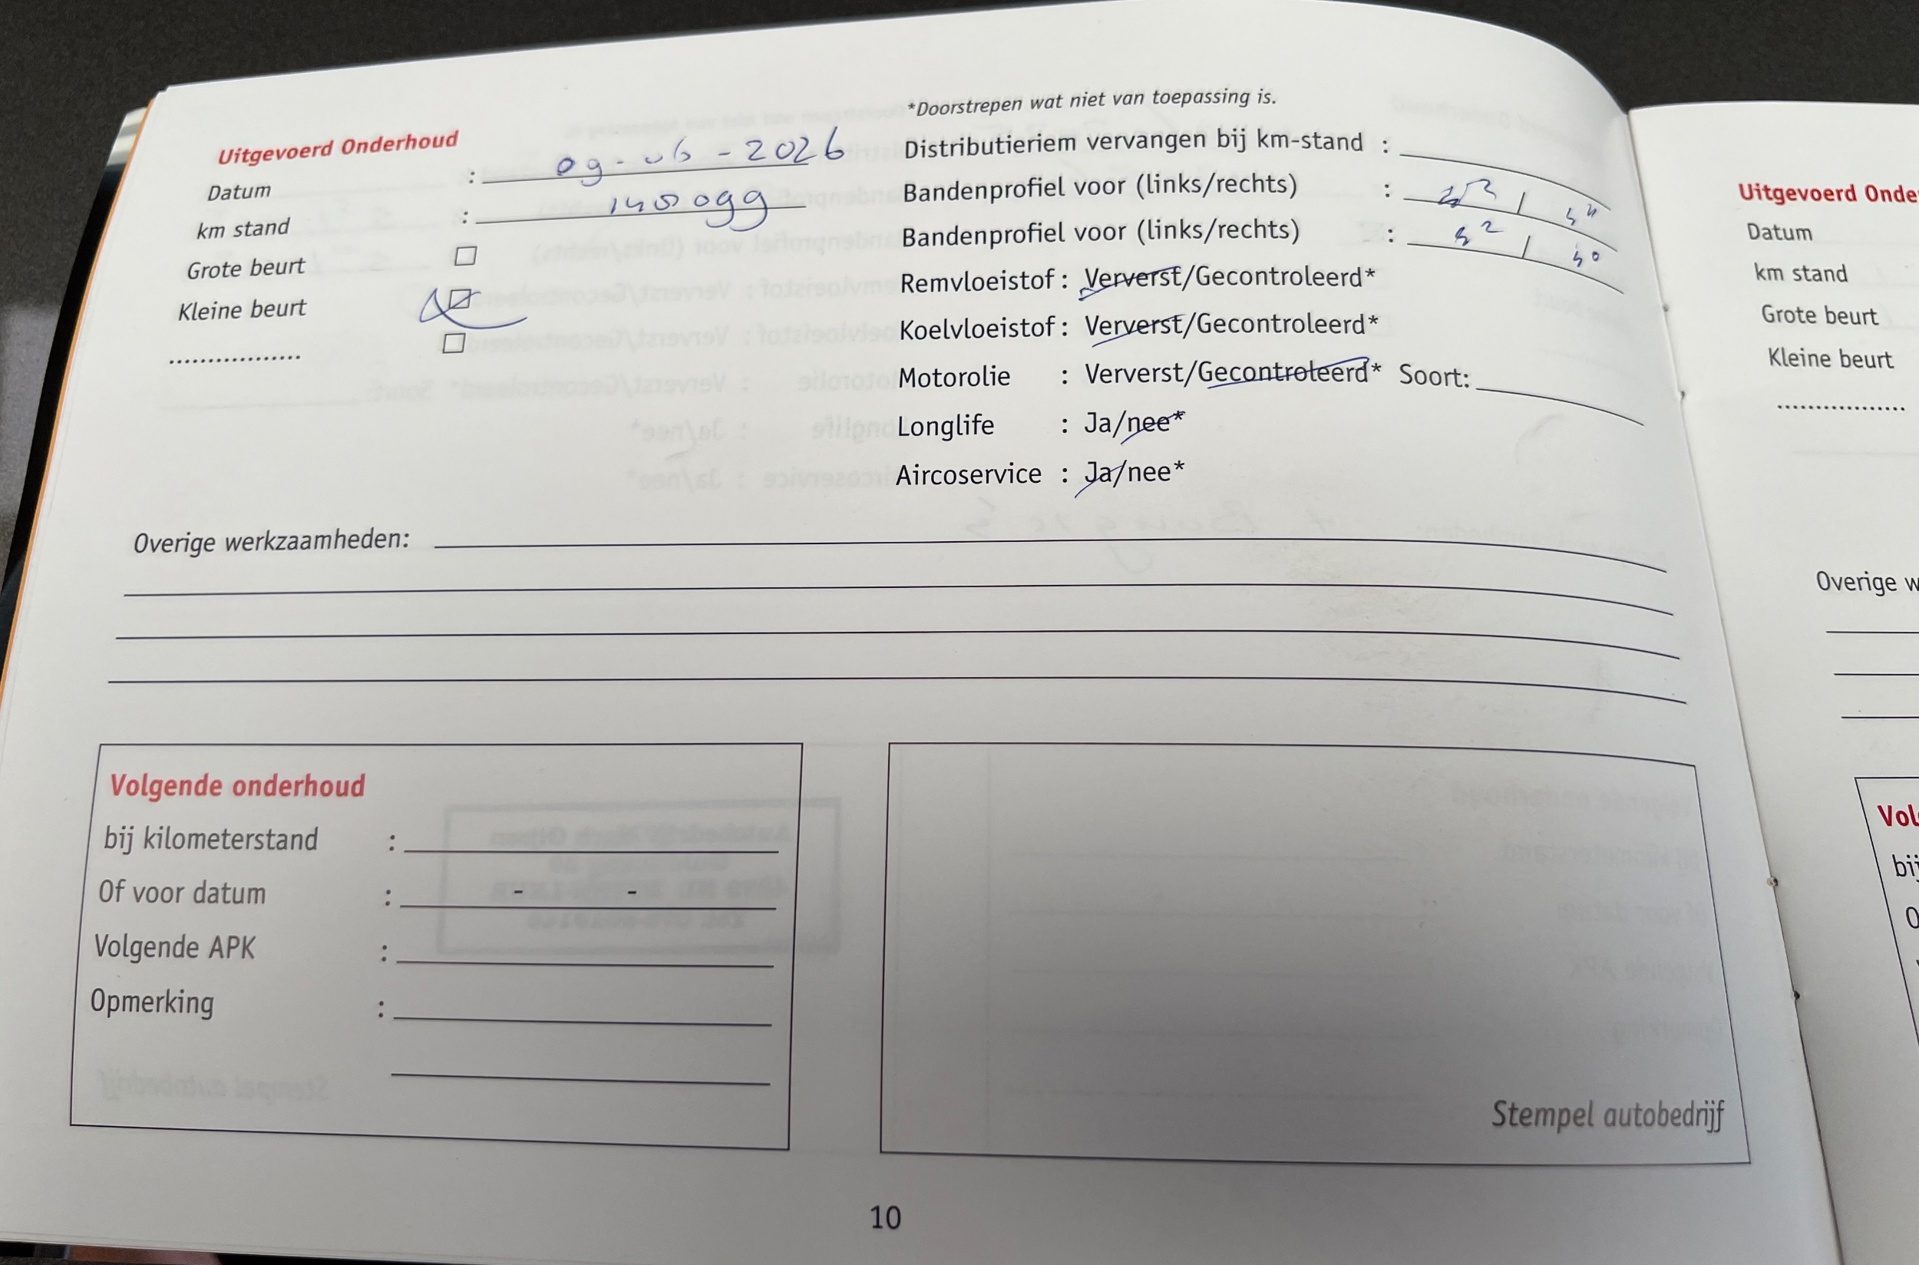 *Doorstrepen wat niet van toepassing is.
Uitgevoerd Onderhoud
Datum : 09-06-2026
km stand :
Grote beurt
Kleine beurt
.................
Distributieriem vervangen bij km-stand :
Bandenprofiel voor (links/rechts) : /
Bandenprofiel voor (links/rechts) : /
Remvloeistof : Ververst/Gecontroleerd*
Koelvloeistof : Ververst/Gecontroleerd*
Motorolie : Ververst/Gecontroleerd* Soort:
Longlife : Ja/nee*
Aircoservice : Ja/nee*
Overige werkzaamheden:
Volgende onderhoud
bij kilometerstand :
Of voor datum : - -
Volgende APK :
Opmerking :
Stempel autobedrijf
10
Uitgevoerd Onde
Datum
km stand
Grote beurt
Kleine beurt
.................
Overige w
Vol
bij